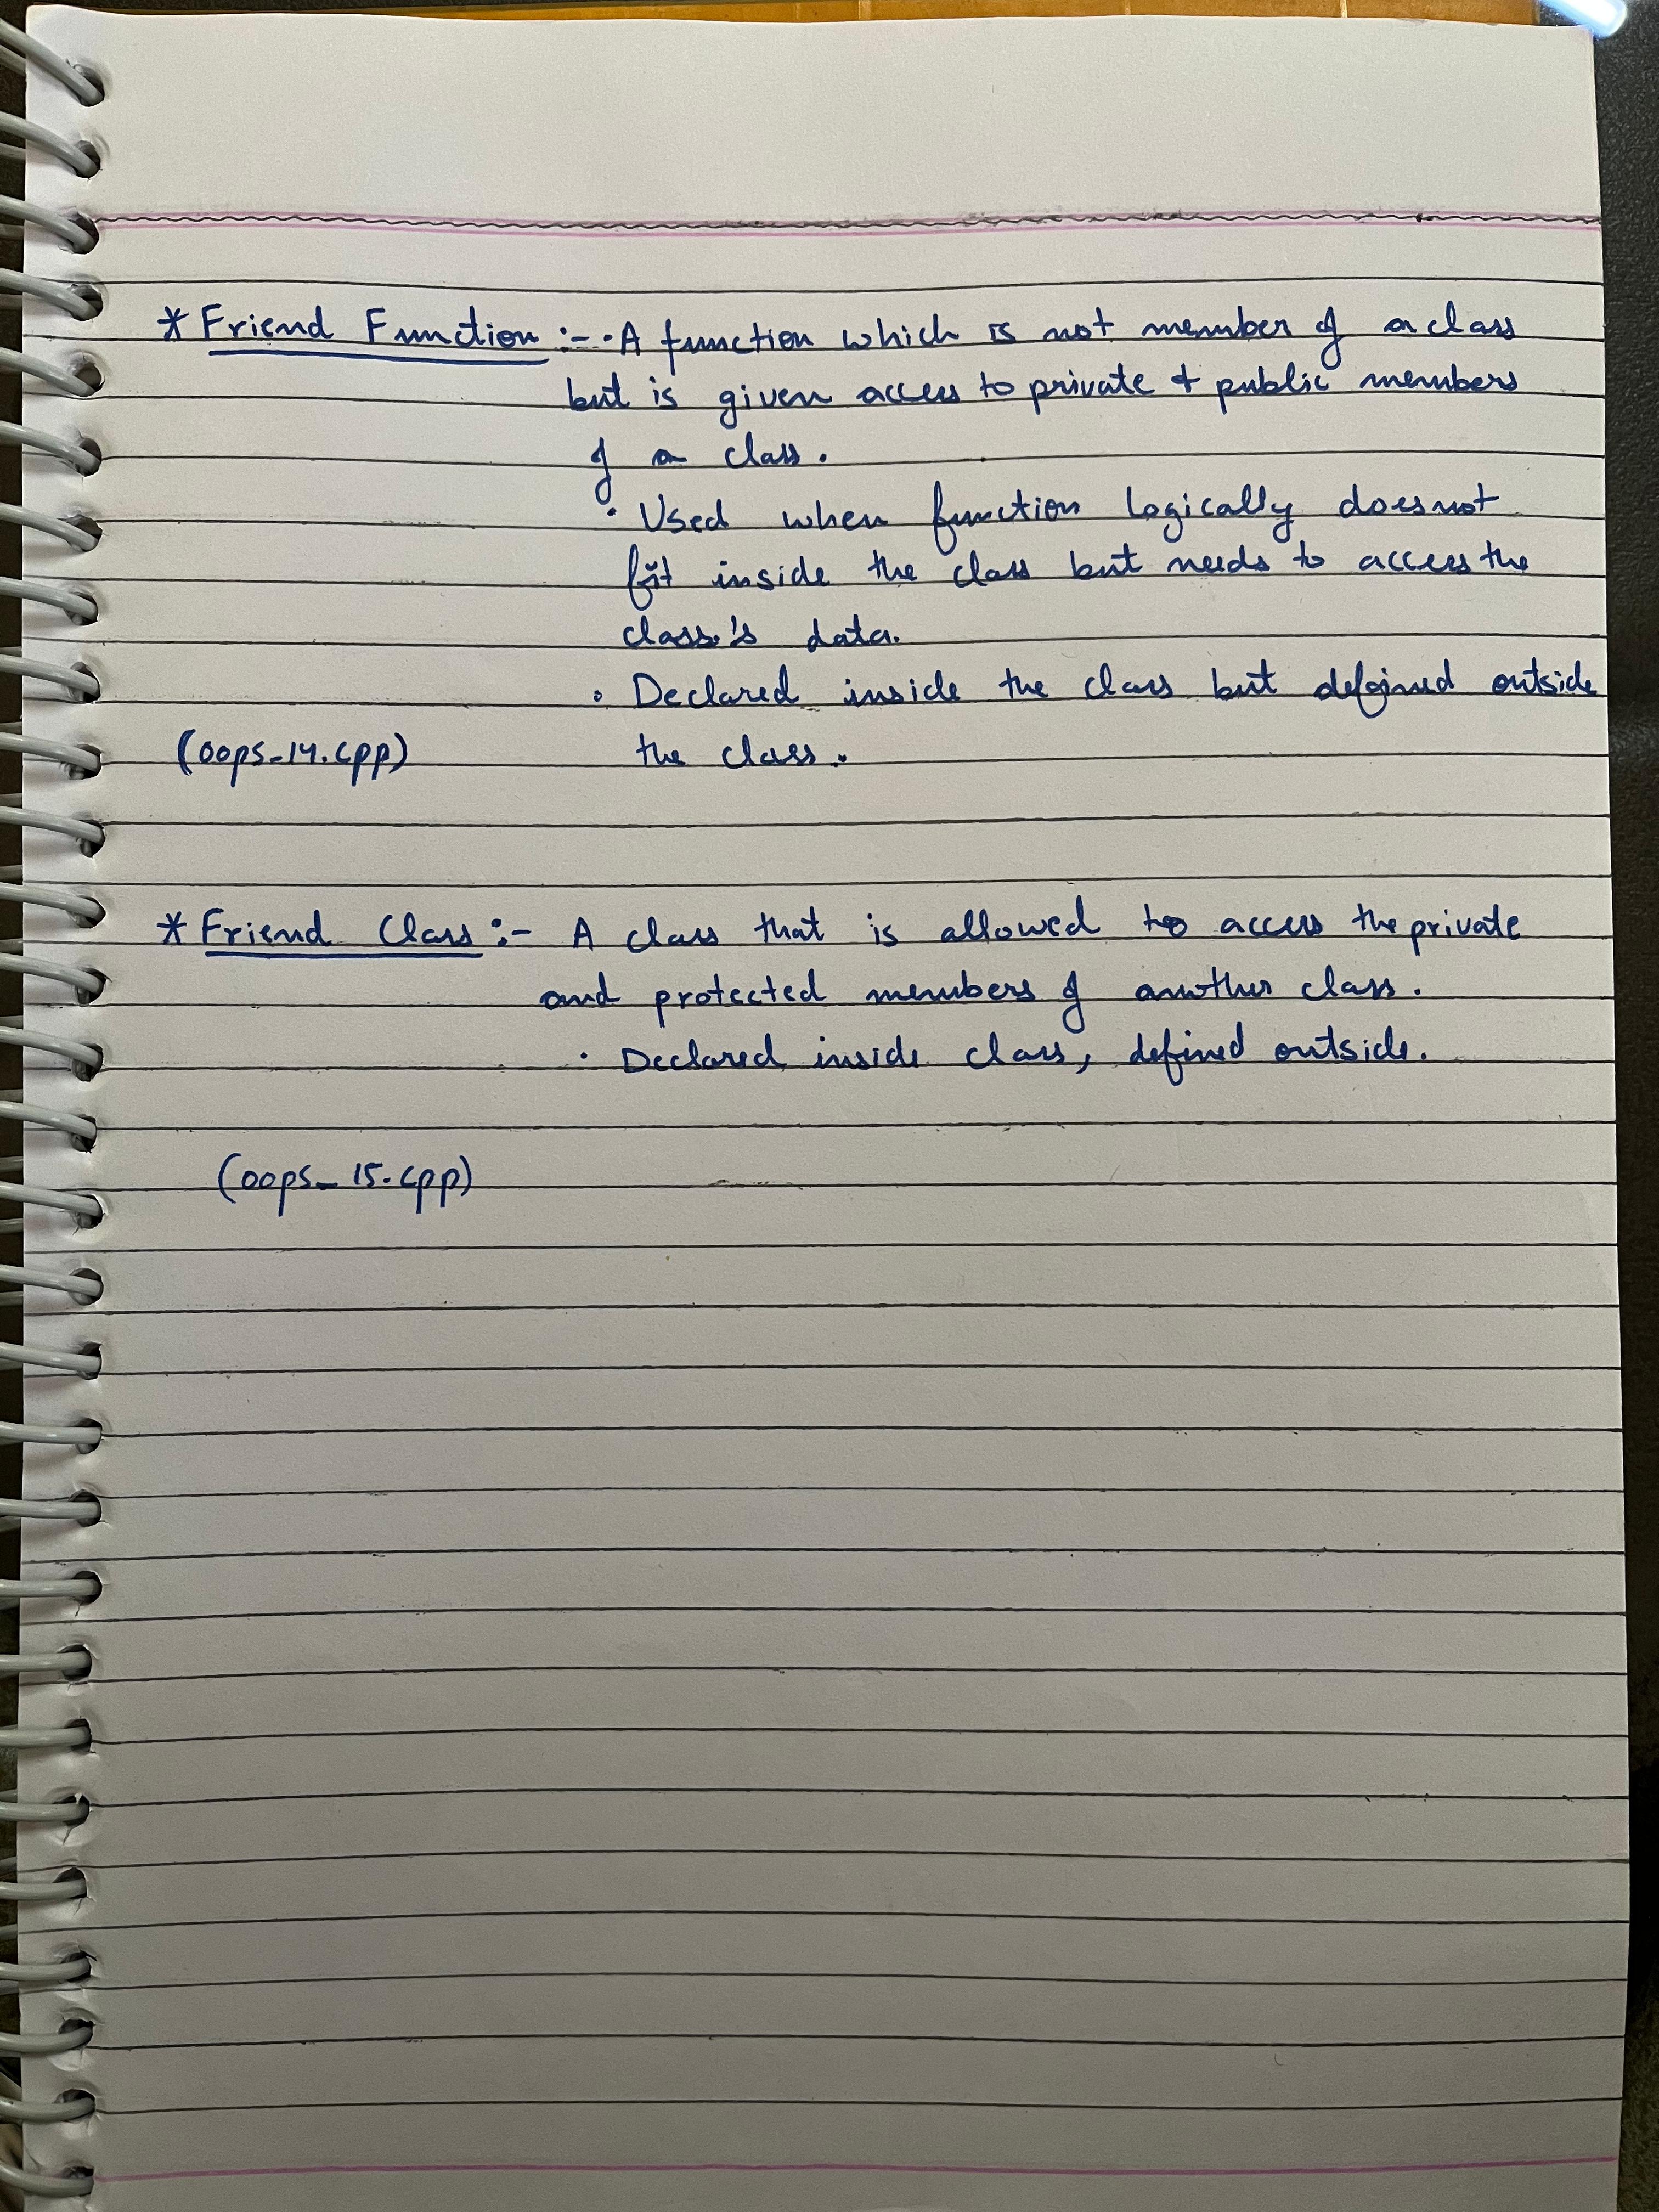 * Friend Function :- • A function which is not member of a class
but is given access to private & public members
of a class.
• Used when function logically does not
fit inside the class but needs to access the
class's data.
• Declared inside the class but defined outside
(oops_14.cpp) the class.
* Friend Class :- A class that is allowed to access the private
and protected members of another class.
• Declared inside class, defined outside.
(oops_15.cpp)